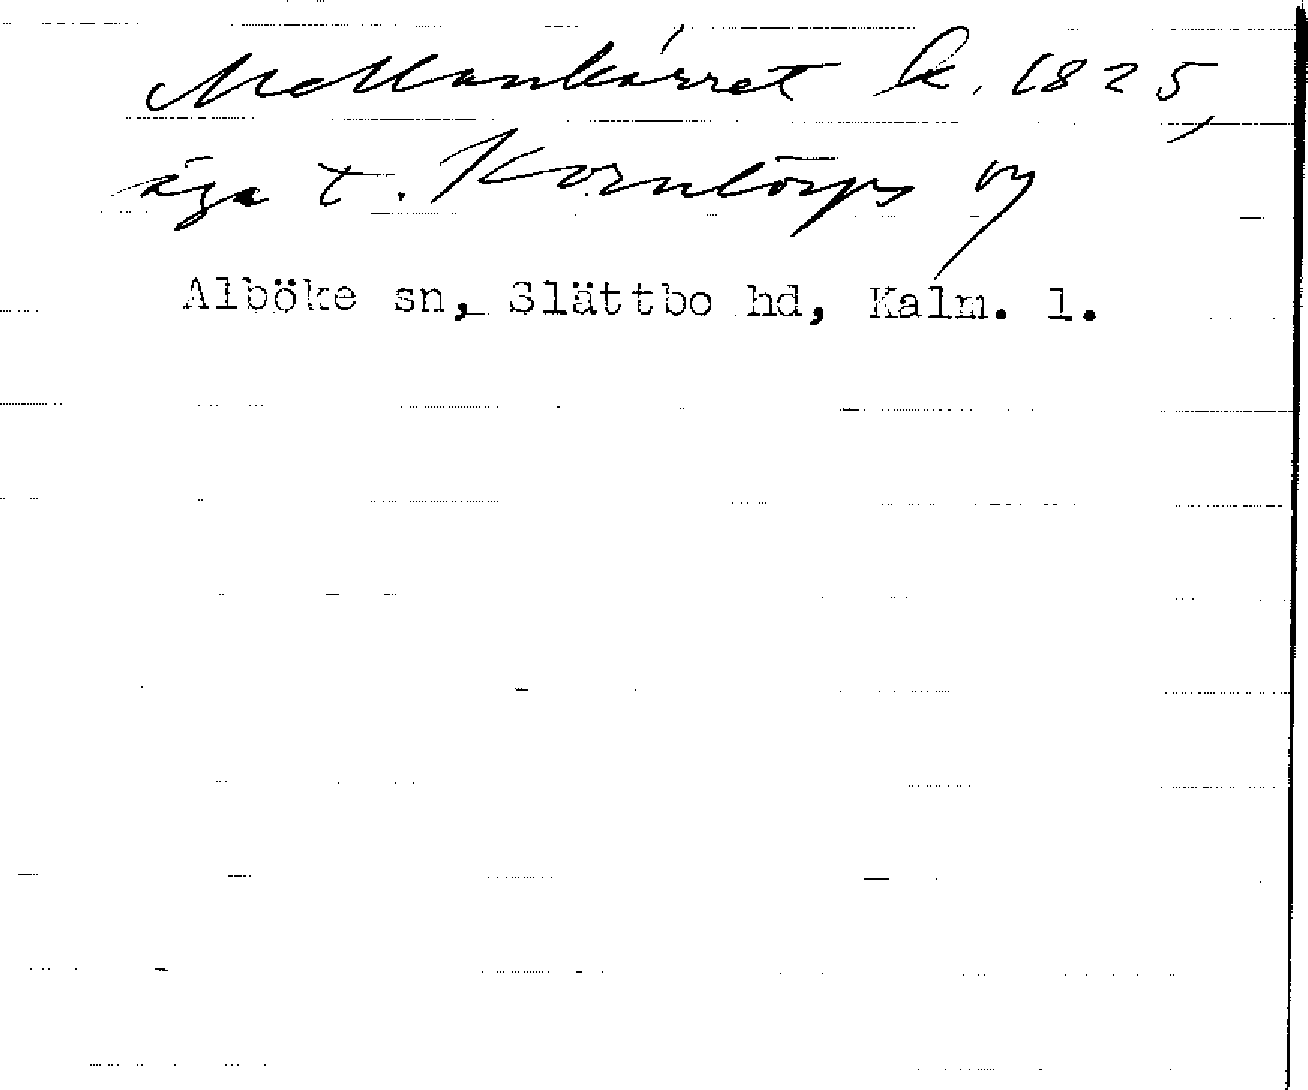 Mellankärret k. 1825,
äga t. Korntorps by
Alböke sn, Slättbo hd, Kalm. l.